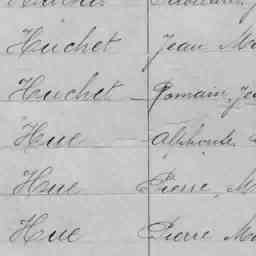 Huchet Jean
Huchet Romain
Hue Alphonse
Hue Pierre
Hue Pierre